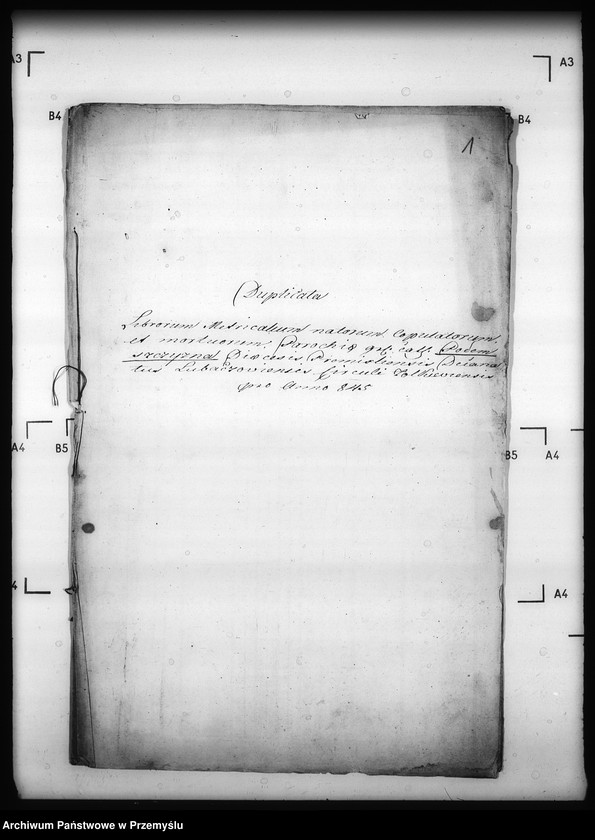 A3
A3
B4
B4
1
Duplicata
Librorum Metricalium natorum Copulatorum,
et mortuorum, Parochiæ gr. cath. Podem
szczyzna Diœcesis Premisliensis Decana
tus Lubaczoviensis Circuli Zolkieviensis
pro Anno 845
A4
B5
B5
A4
4
A4
Archiwum Państwowe w Przemyślu